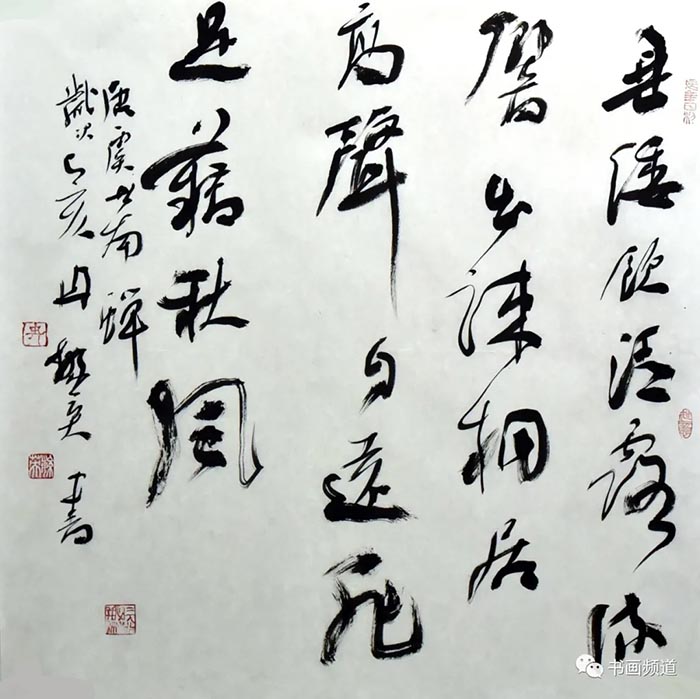 垂緌飲清露流
響出疎桐居
高聲自遠非
是藉秋風
唐虞世南蟬
歲次己亥 書
书画频道